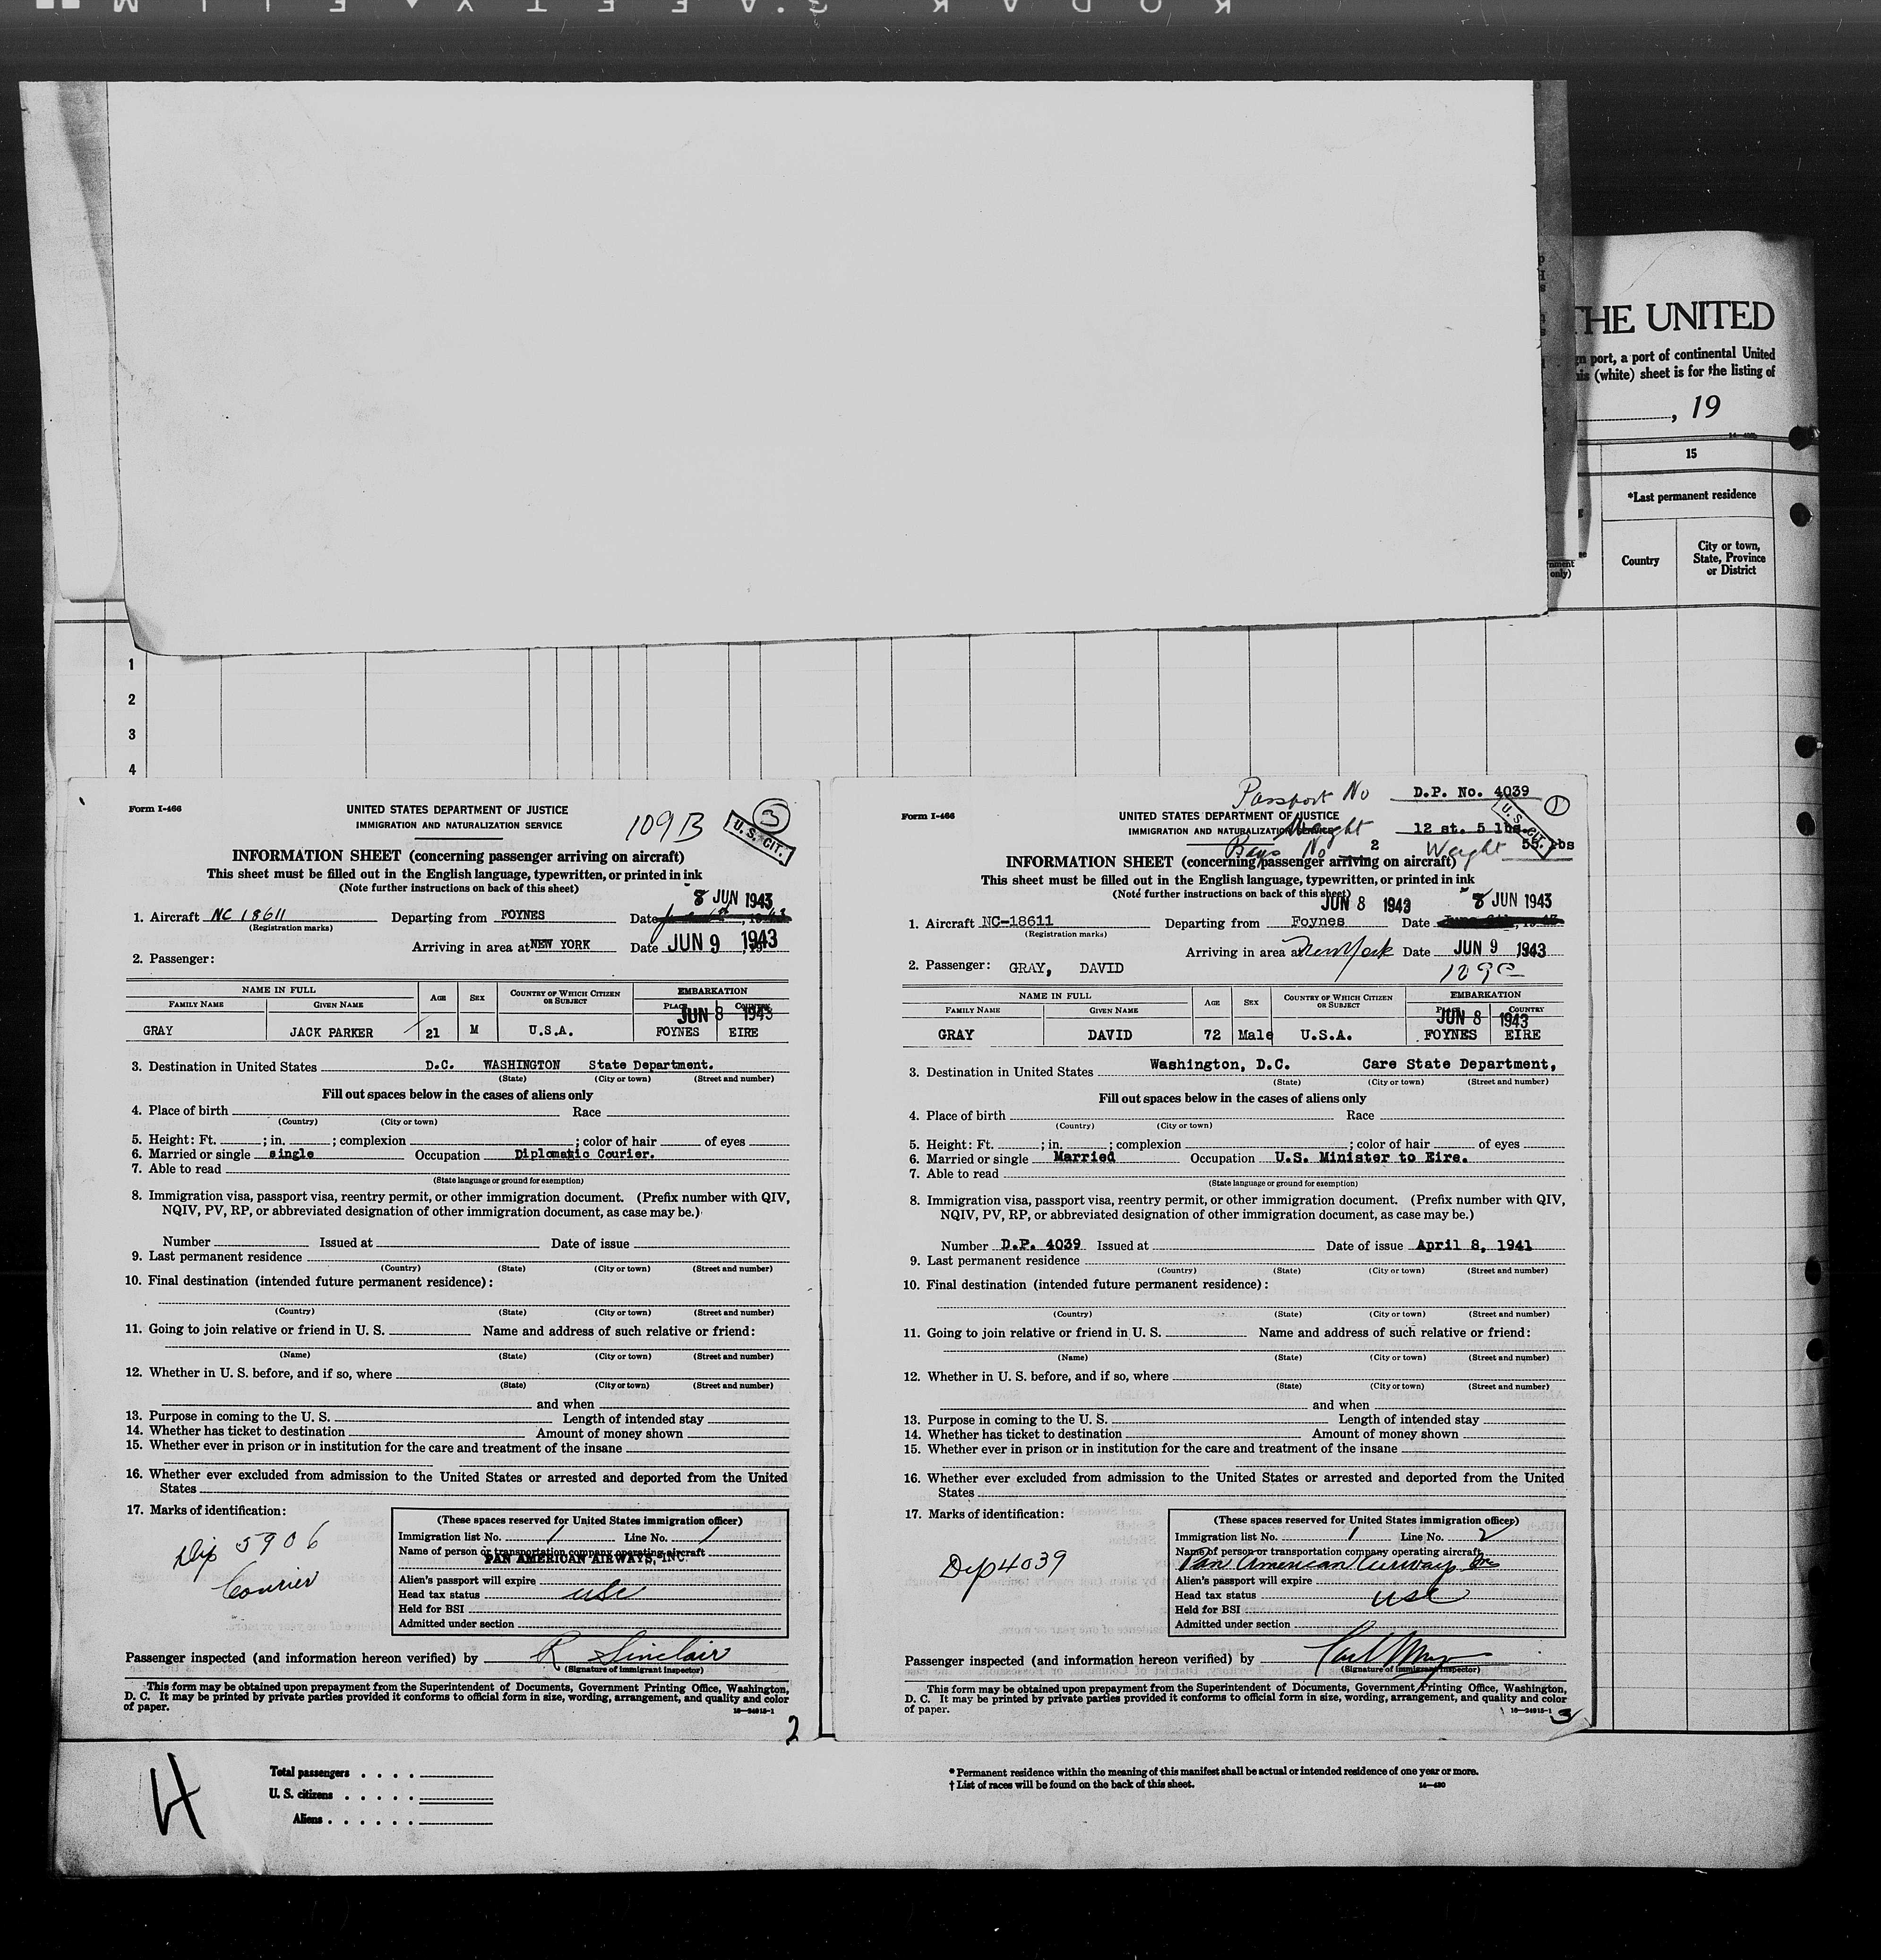 KODAK SAFETY FILM
THE UNITED
gn port, a port of continental United
his (white) sheet is for the listing of
, 19
15
*Last permanent residence
Country
City or town,
State, Province
or District
nment
only)
1
2
3
4
Form I-466
UNITED STATES DEPARTMENT OF JUSTICE
IMMIGRATION AND NATURALIZATION SERVICE
109 B
3
U.S. CIT.
INFORMATION SHEET (concerning passenger arriving on aircraft)
This sheet must be filled out in the English language, typewritten, or printed in ink
(Note further instructions on back of this sheet)
8 JUN 1943
1. Aircraft NC 18611 Departing from FOYNES Date
(Registration marks)
Arriving in area at NEW YORK Date JUN 9 1943
2. Passenger:
NAME IN FULL AGE SEX COUNTRY OF WHICH CITIZEN OR SUBJECT EMBARKATION
FAMILY NAME GIVEN NAME PLACE COUNTRY
JUN 8 1943
GRAY JACK PARKER 21 M U.S.A. FOYNES EIRE
3. Destination in United States D.C. WASHINGTON State Department.
(State) (City or town) (Street and number)
Fill out spaces below in the cases of aliens only
4. Place of birth Race
(Country) (City or town)
5. Height: Ft. ; in. ; complexion ; color of hair of eyes
6. Married or single single Occupation Diplomatic Courier.
7. Able to read
(State language or ground for exemption)
8. Immigration visa, passport visa, reentry permit, or other immigration document. (Prefix number with QIV,
NQIV, PV, RP, or abbreviated designation of other immigration document, as case may be.)
Number Issued at Date of issue
9. Last permanent residence
(Country) (State) (City or town) (Street and number)
10. Final destination (intended future permanent residence):
(Country) (State) (City or town) (Street and number)
11. Going to join relative or friend in U. S. Name and address of such relative or friend:
(Name) (State) (City or town) (Street and number)
12. Whether in U. S. before, and if so, where
(State) (City or town) (Street and number)
and when
13. Purpose in coming to the U. S. Length of intended stay
14. Whether has ticket to destination Amount of money shown
15. Whether ever in prison or in institution for the care and treatment of the insane
16. Whether ever excluded from admission to the United States or arrested and deported from the United
States
17. Marks of identification:
Dip 5906
Courier
(These spaces reserved for United States immigration officer)
Immigration list No. 1 Line No. 1
Name of person or transportation company operating aircraft
PAN AMERICAN AIRWAYS, INC.
Alien's passport will expire
Head tax status usc
Held for BSI
Admitted under section
Passenger inspected (and information hereon verified) by R Sinclair
(Signature of immigrant inspector)
This form may be obtained upon prepayment from the Superintendent of Documents, Government Printing Office, Washington,
D. C. It may be printed by private parties provided it conforms to official form in size, wording, arrangement, and quality and color
of paper.
16—24915-1
2
Passport No D.P. No. 4039
1
Form I-466
UNITED STATES DEPARTMENT OF JUSTICE
IMMIGRATION AND NATURALIZATION SERVICE
Weight 12 st. 5 lbs.
U.S. CIT.
Bags No 2 Weight 55 lbs
INFORMATION SHEET (concerning passenger arriving on aircraft)
This sheet must be filled out in the English language, typewritten, or printed in ink
(Note further instructions on back of this sheet)
JUN 8 1943
8 JUN 1943
1. Aircraft NC-18611 Departing from Foynes Date
(Registration marks)
Arriving in area at New York Date JUN 9 1943
2. Passenger: GRAY, DAVID
NAME IN FULL AGE SEX COUNTRY OF WHICH CITIZEN OR SUBJECT EMBARKATION
FAMILY NAME GIVEN NAME PLACE COUNTRY
JUN 8 1943
GRAY DAVID 72 Male U.S.A. FOYNES EIRE
3. Destination in United States Washington, D.C. Care State Department,
(State) (City or town) (Street and number)
Fill out spaces below in the cases of aliens only
4. Place of birth Race
(Country) (City or town)
5. Height: Ft. ; in. ; complexion ; color of hair of eyes
6. Married or single Married Occupation U.S. Minister to Eire.
7. Able to read
(State language or ground for exemption)
8. Immigration visa, passport visa, reentry permit, or other immigration document. (Prefix number with QIV,
NQIV, PV, RP, or abbreviated designation of other immigration document, as case may be.)
Number D.P. 4039 Issued at Date of issue April 8, 1941
9. Last permanent residence
(Country) (State) (City or town) (Street and number)
10. Final destination (intended future permanent residence):
(Country) (State) (City or town) (Street and number)
11. Going to join relative or friend in U. S. Name and address of such relative or friend:
(Name) (State) (City or town) (Street and number)
12. Whether in U. S. before, and if so, where
(State) (City or town) (Street and number)
and when
13. Purpose in coming to the U. S. Length of intended stay
14. Whether has ticket to destination Amount of money shown
15. Whether ever in prison or in institution for the care and treatment of the insane
16. Whether ever excluded from admission to the United States or arrested and deported from the United
States
17. Marks of identification:
Dip 4039
(These spaces reserved for United States immigration officer)
Immigration list No. 1 Line No. 2
Name of person or transportation company operating aircraft
Pan American Airways Inc
Alien's passport will expire
Head tax status usc
Held for BSI
Admitted under section
Passenger inspected (and information hereon verified) by
(Signature of immigrant inspector)
This form may be obtained upon prepayment from the Superintendent of Documents, Government Printing Office, Washington,
D. C. It may be printed by private parties provided it conforms to official form in size, wording, arrangement, and quality and color
of paper.
16—24915-1
3
H
Total passengers
U. S. citizens
Aliens
* Permanent residence within the meaning of this manifest shall be actual or intended residence of one year or more.
† List of races will be found on the back of this sheet.
14—430